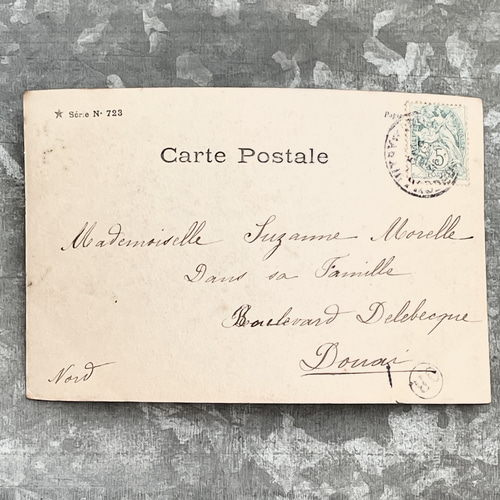 ★ Série Nº 723
Carte Postale
5
Mademoiselle Suzanne Morelle
Dans sa Famille
Boulevard Delebecque
Douai
Nord